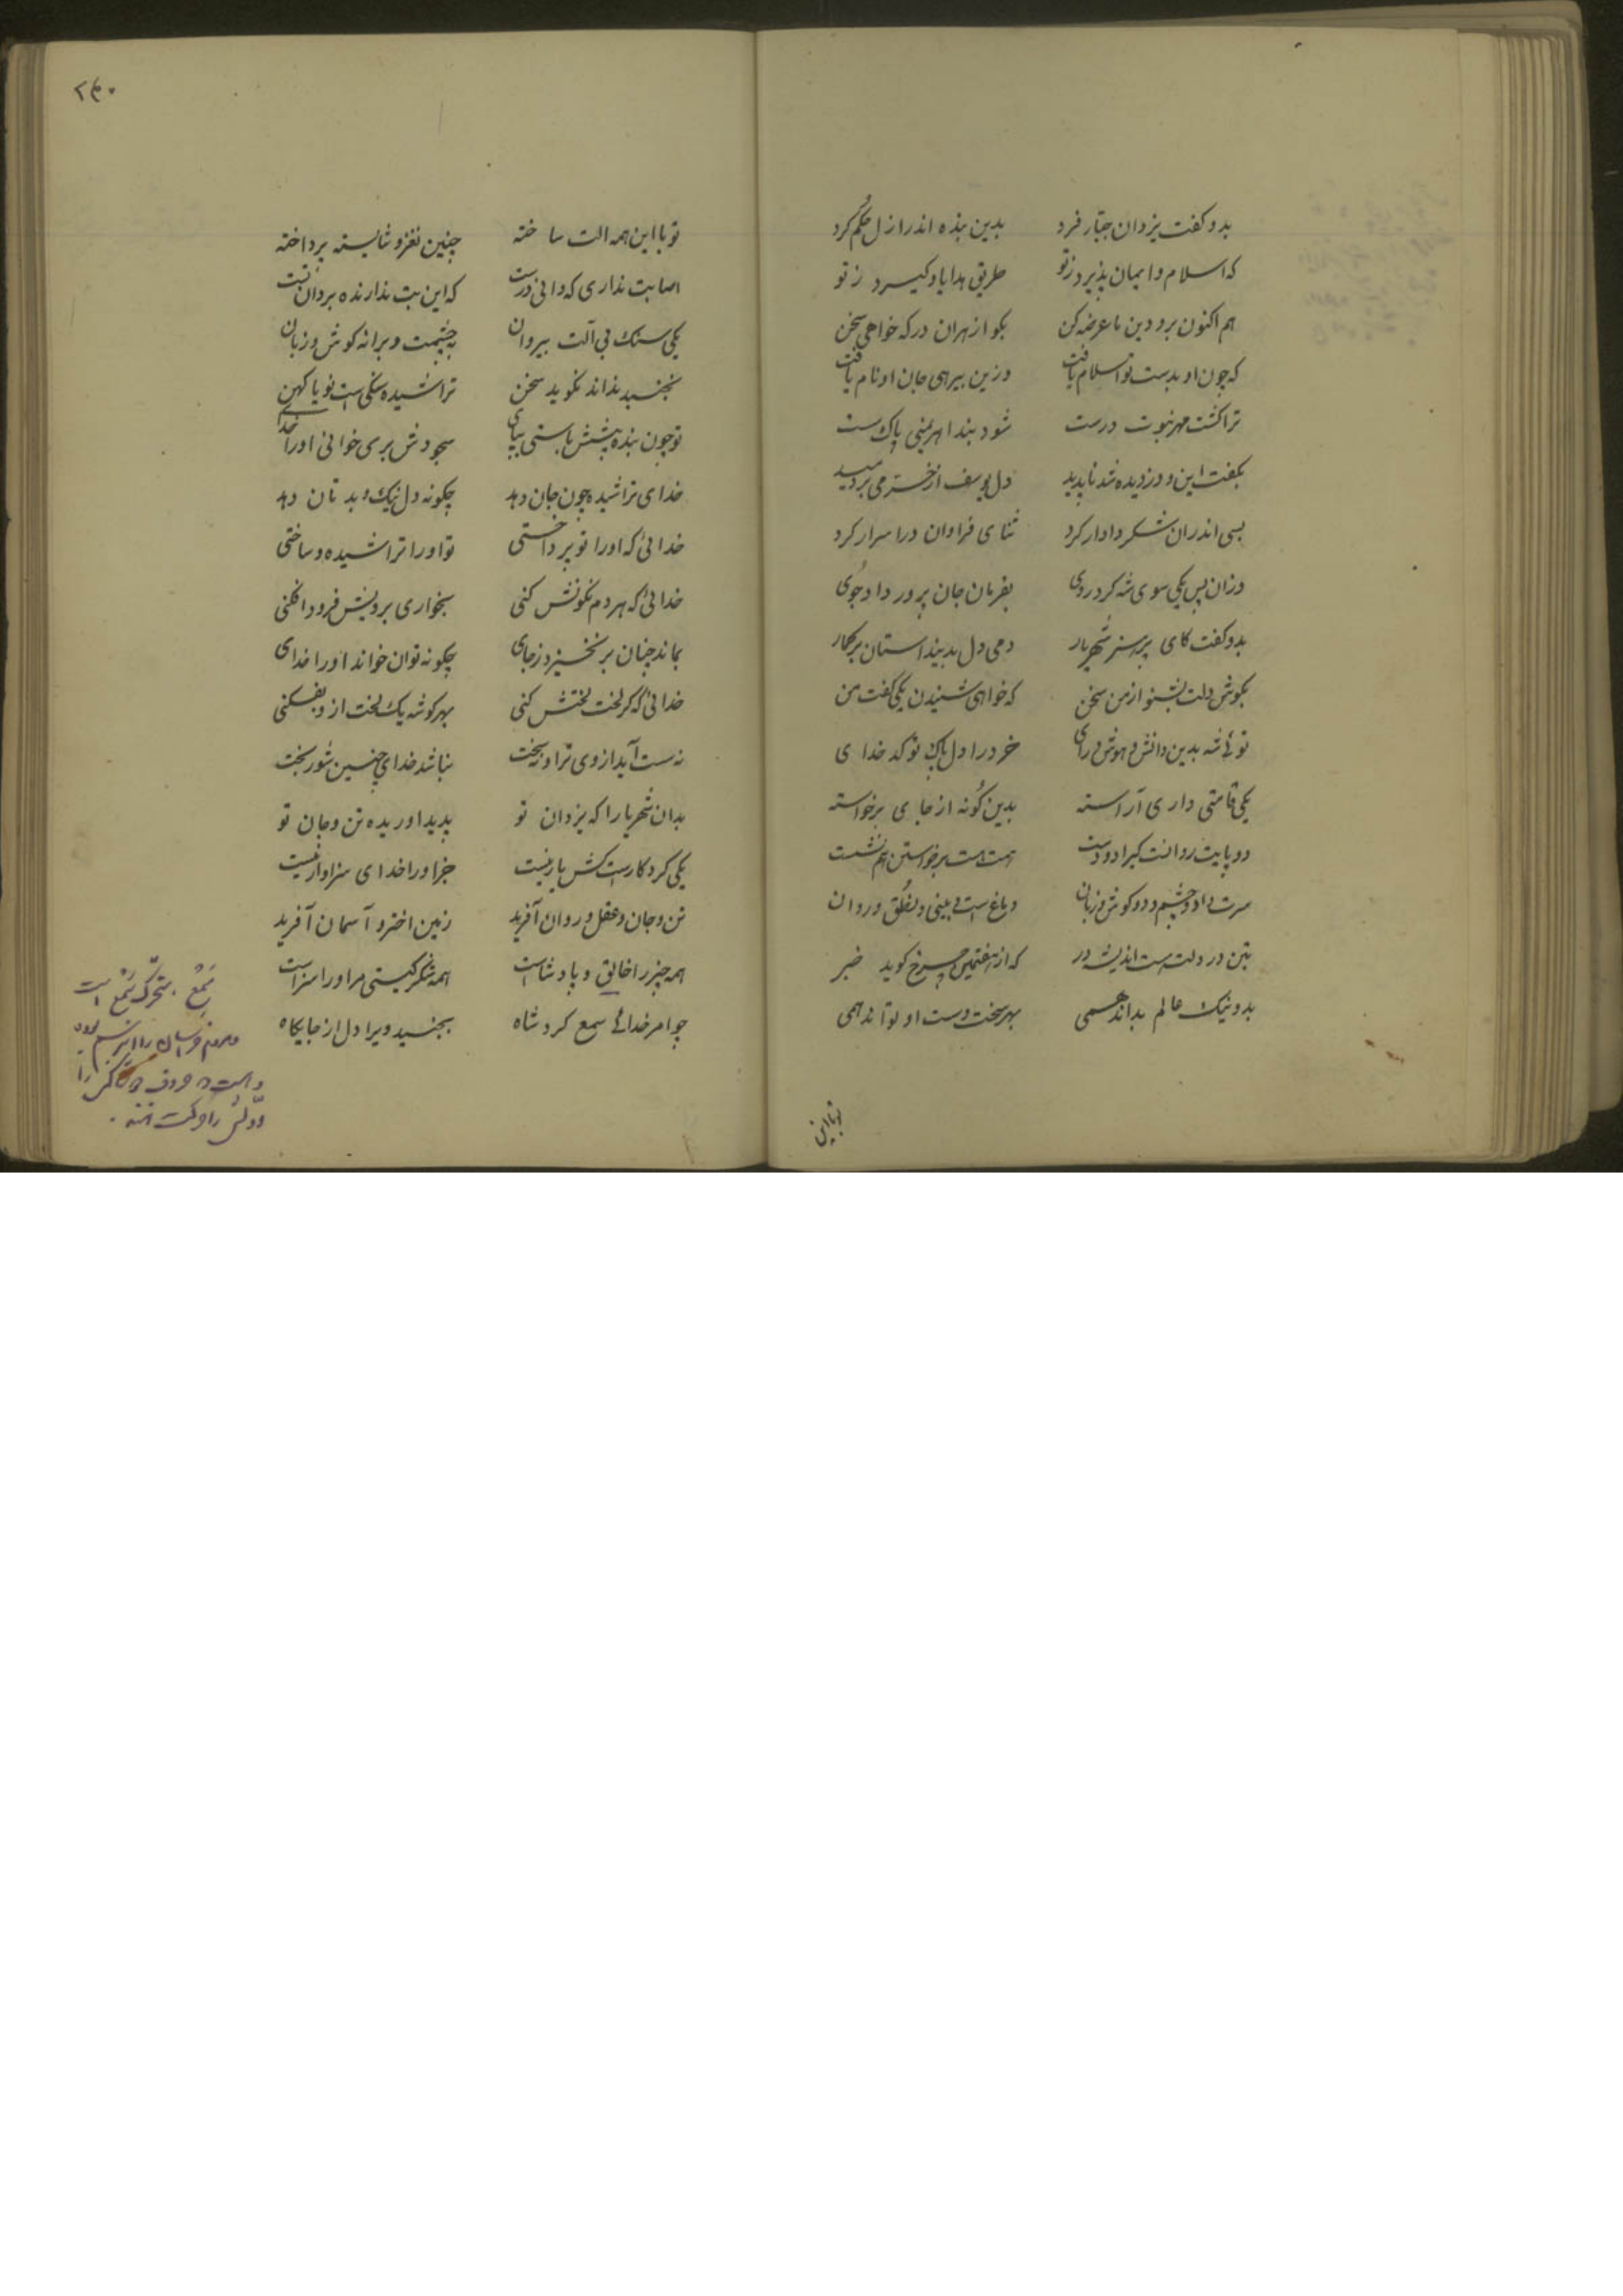 بدو گفت یزدان جبّار فرد بدین بنده اندر ازل حُکم کرد
که اسلام و ایمان پذیرد ز تو طریق هدایا و گیرد ز تو
هم اکنون برو دین با عرضه کن بگو از هران در که خواهی سخن
که چون او بدست تو اسلام یافت وزین بیرهی جان او نام یافت
ترا گشت مهر نبوت درست شود بند اهریمنی پاک سست
بگفت این و در دیده شد ناپدید دل یوسف از خرمی بردمید
بسی اندران شکر دادار کرد ثنای فراوان در اسرار کرد
وزان پس یکی سوی شه کرد روی بفرمان جان پرور داد جوی
بدو گفت کای پر هنر شهریار دمی دل بدین داستان برگمار
بگوش دلت بشنو از من سخن که خواهی شنیدن یکی گفت من
توئی شه بدین دانش و هوش و رای خرد را دل پاک تو کدخدای
یکی قامتی داری آراسته بدین گونه از جای برخواسته
دو پایت روانست گیرا دو دست همت هست برخواستن هم نشست
سرت داد و چشم و دو گوش و زبان دماغ است و بینی و نطق و روان
بتن در دلت هست اندیشه در که از هفتمین چرخ گوید خبر
بد و نیک عالم بداند همی بهر سخت و سست او تواند همی
تو با این
۲۶۰
تو با این همه الت ساخته چنین نغز و شایسته پرداخته
اصابت نداری که دانی درست که این بت ندارنده بردان تست
یکی سنگ بی آلت بیروان نه چشمست ویرا نه گوش و زبان
نجنبد نداند نگوید سخن تراشیده سنگی است نو یا کهن
تو چون بنده پیشش باستی بپای سجودش بری خوانی او را خدای
خدای تراشیده چون جان دهد چگونه دل نیک و بد تان دهد
خدائی که او را تو پرداختی تو او را تراشیده و ساختی
خدائی که هر دم نگونش کنی بخواری برویش فرود افکنی
بماند چنان بر نخیزد ز جای چگونه توان خواند او را خدای
خدائی که گر لخت لختش کنی بهر گوشه یک لخت از و بفکنی
نه سست آید از وی ترا و نه سخت نباشد خدای چنین شوربخت
بدان شهریارا که یزدان تو پدید اوریده تن و جان تو
یکی کردگارست کش یار نیست جز او را خدای سزاوار نیست
تن و جان و عقل و روان آفرید زمین اختر و آسمان آفرید
همه چیز را خالق و پادشاست همه شکر گیتی مر او را سزاست
چو امر خدائی سمع کرد شاه بجنبید ویرا دل از جایگاه
سَمْع متحرّک سَمْع است